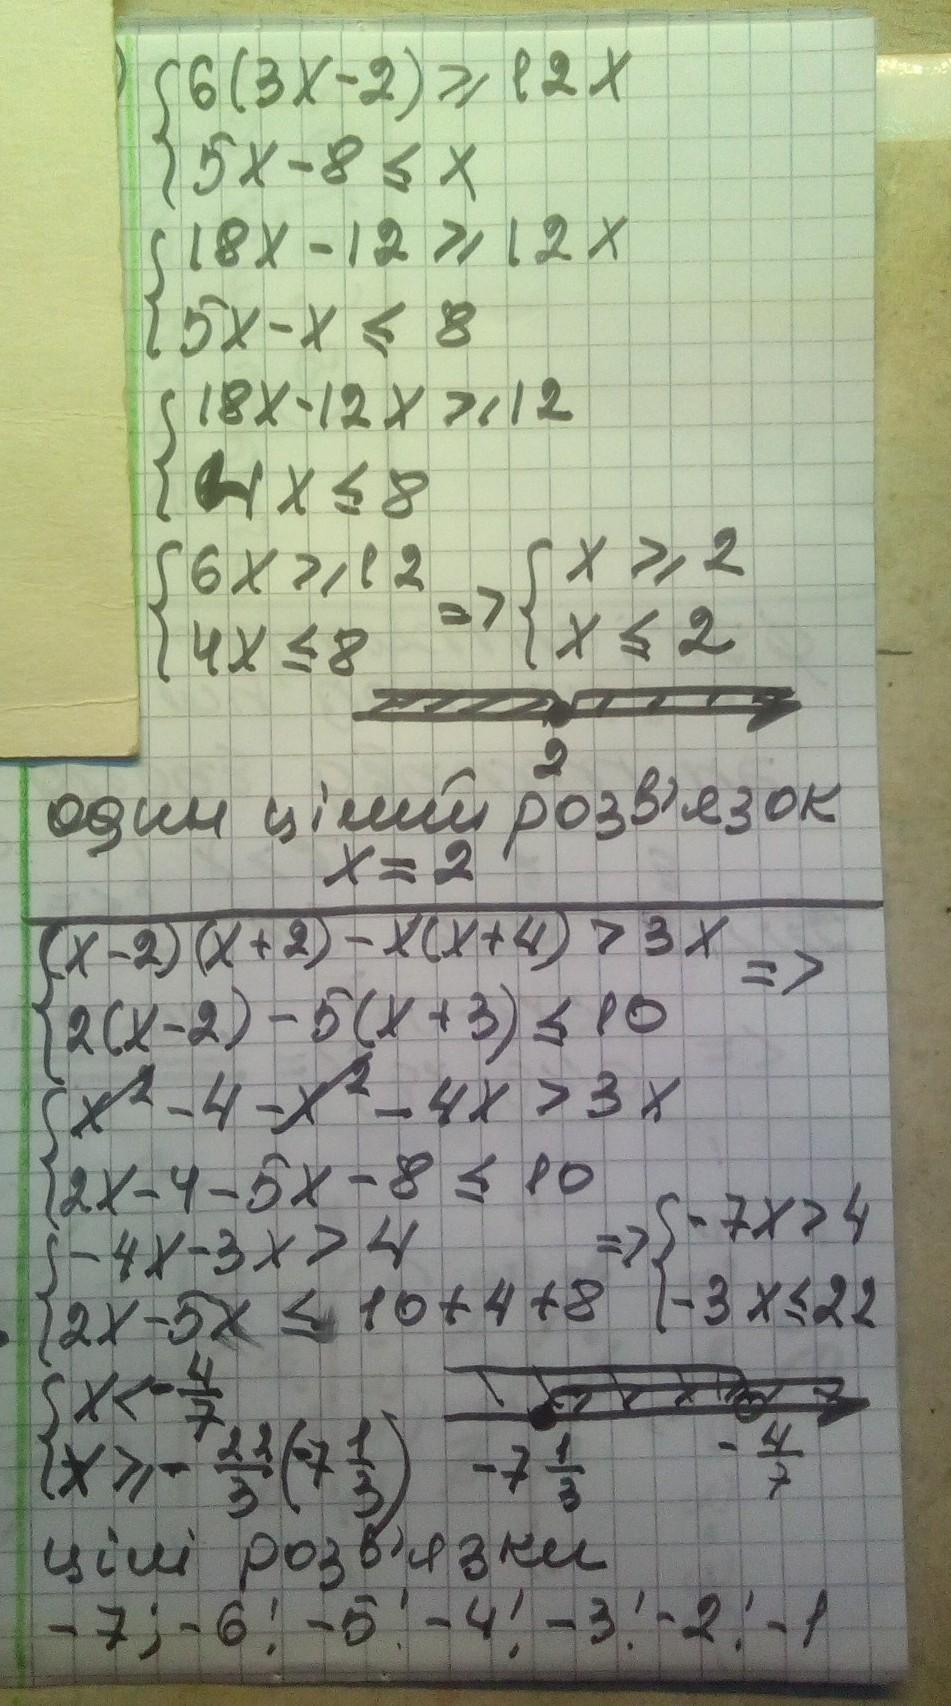 6(3x-2) ⩾ 12x
5x-8 ≤ x
18x-12 ⩾ 12x
5x-x ≤ 8
18x-12x ⩾ 12
4x ≤ 8
6x ⩾ 12 => x ⩾ 2
4x ≤ 8 x ≤ 2
2
один цілий розв'язок
x = 2
(x-2)(x+2) - x(x+4) > 3x =>
2(x-2) - 5(x+3) ≤ 10
x² - 4 - x² - 4x > 3x
2x-4-5x-8 ≤ 10
-4x-3x > 4 => -7x > 4
2x-5x ≤ 10+4+8 -3x ≤ 22
x < -4/7
x ⩾ -22/3 (-7 1/3) -7 1/3 -4/7
цілі розв'язки
-7; -6; -5; -4; -3; -2; -1